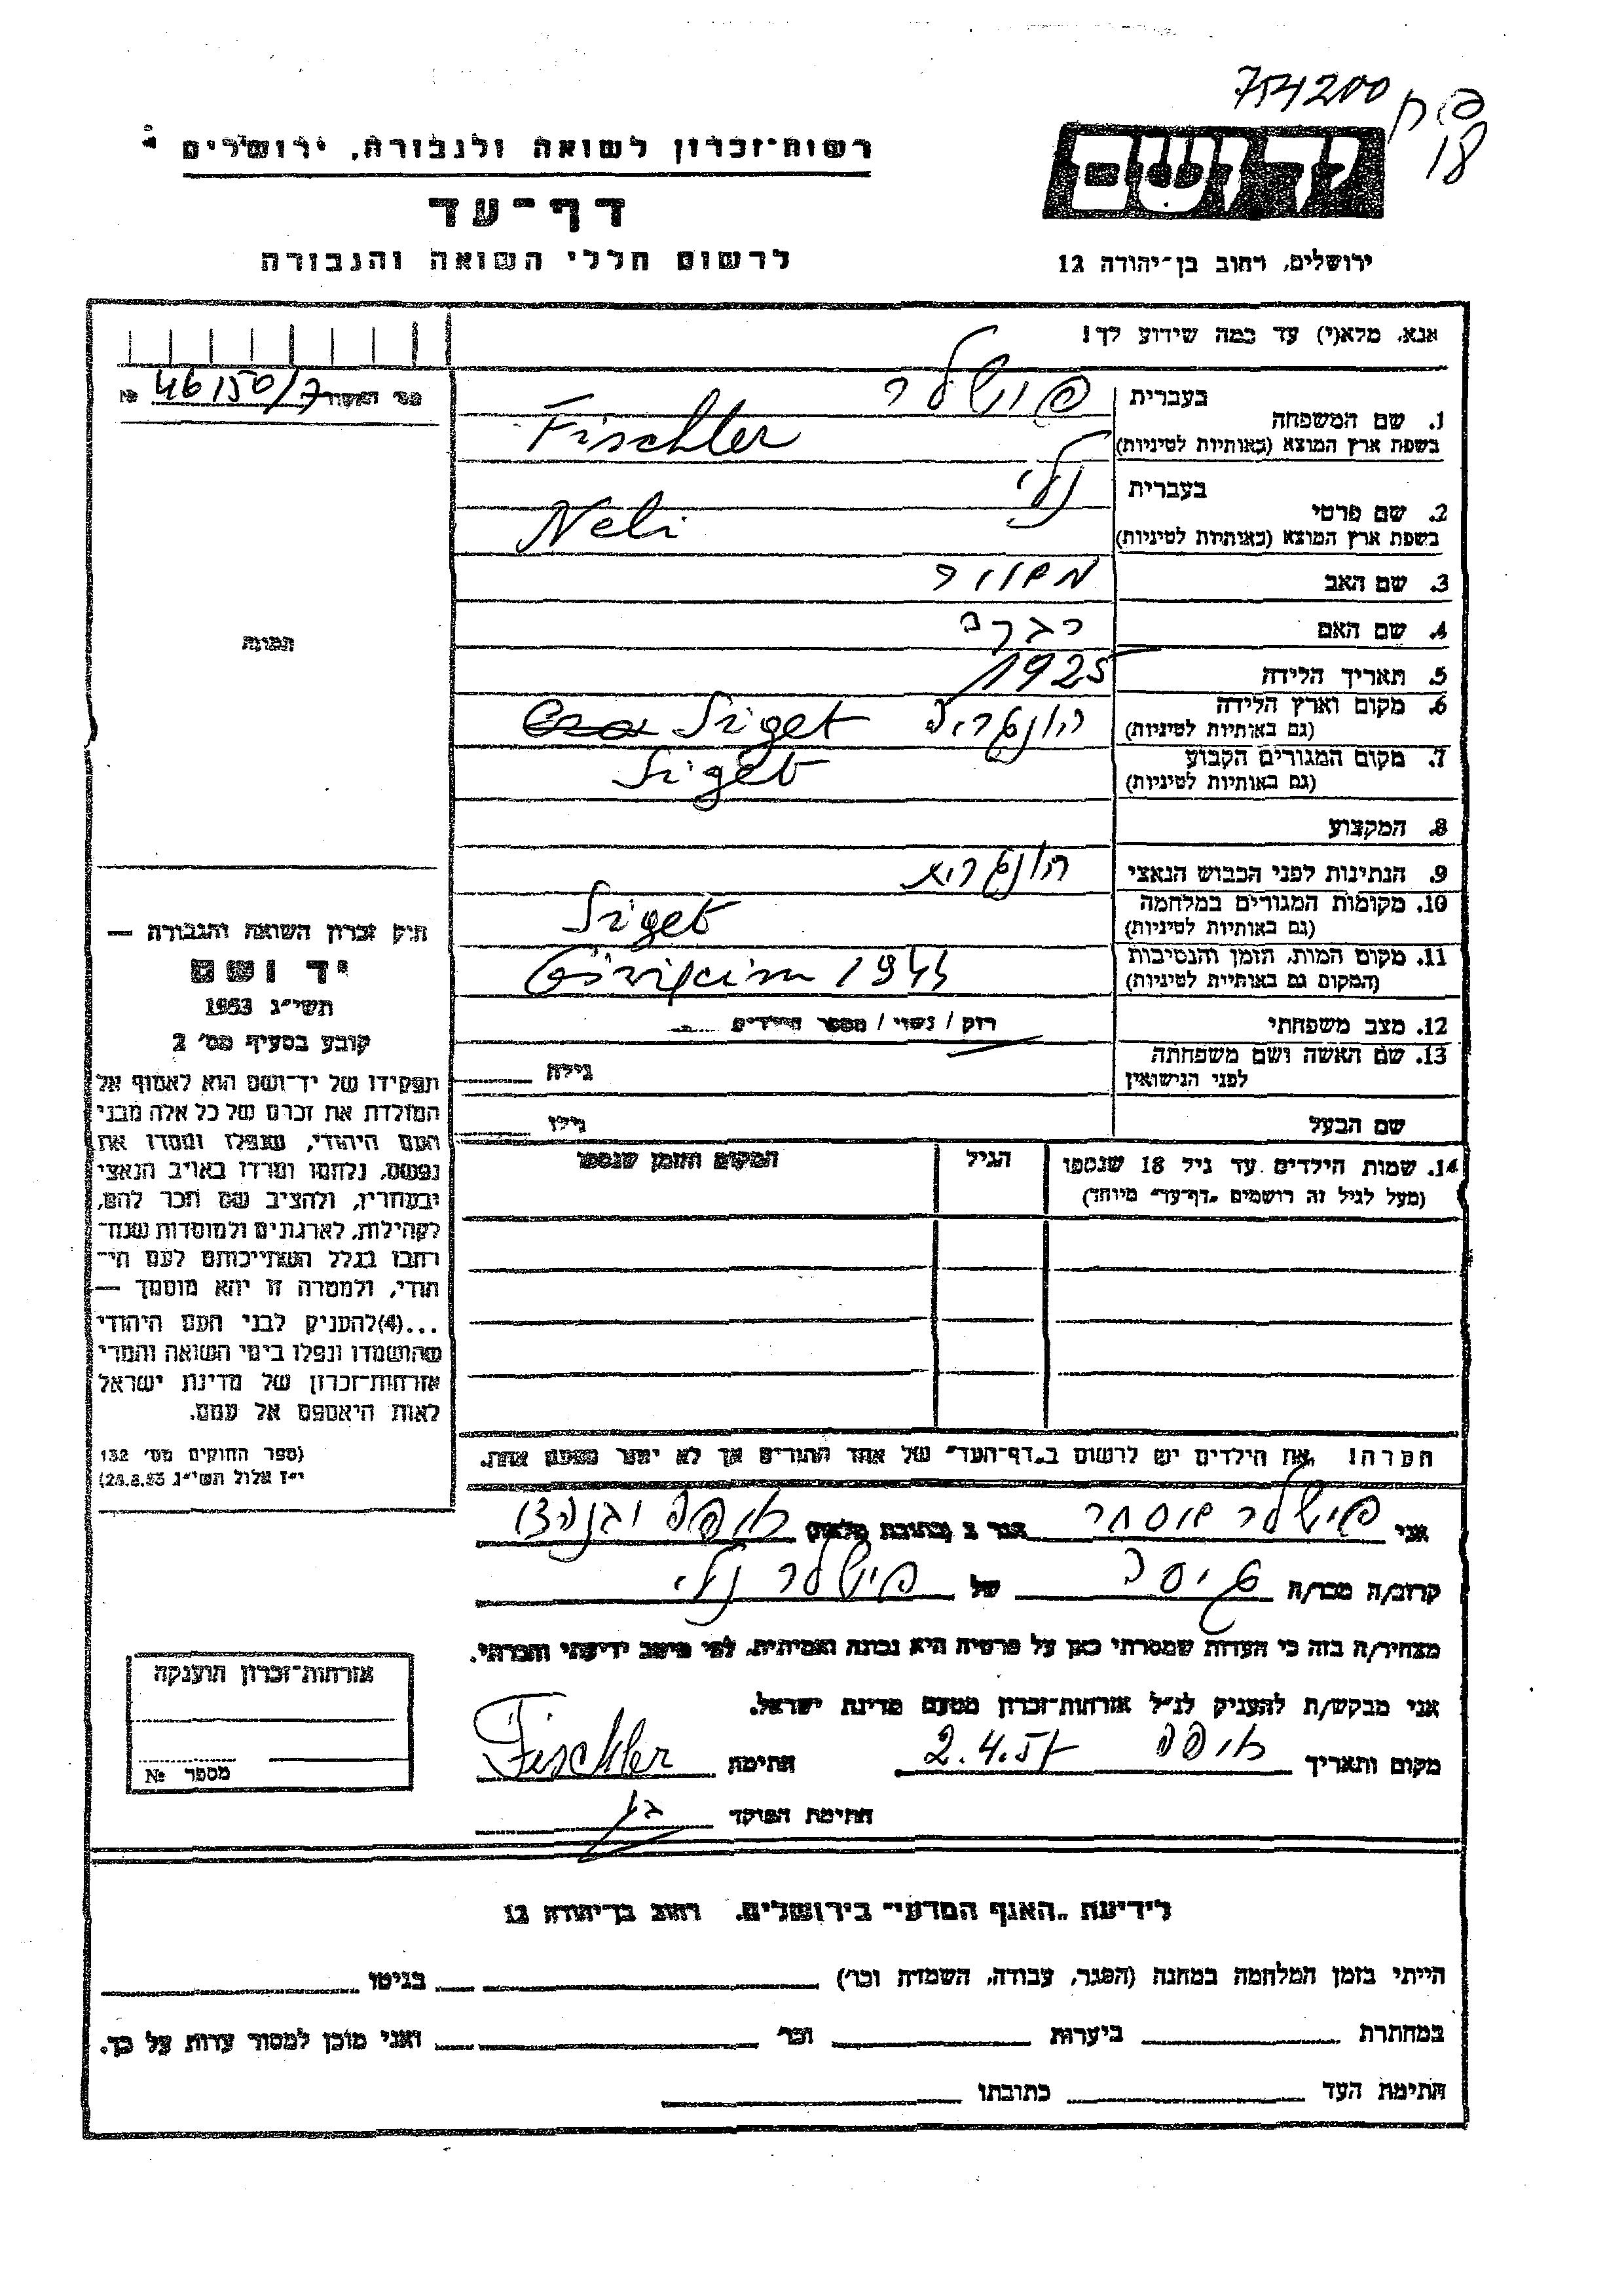 754200
18
רשות־זכרון לשואה ולגבורה, ירושלים
יד ושם
דף־עד
לרשום חללי השואה והגבורה
ירושלים, רחוב בן־יהודה 12
אנא, מלא(י) עד כמה שידוע לך!
מס׳ האשור 46150/7 №
1. שם המשפחה
בעברית פישלר
בשפת ארץ המוצא (באותיות לטיניות) Fischler
2. שם פרטי
בעברית נלי
בשפת ארץ המוצא (באותיות לטיניות) Neli
3. שם האב
4. שם האם
5. תאריך הלידה 1925
6. מקום וארץ הלידה הונגריה Sziget
(גם באותיות לטיניות)
7. מקום המגורים הקבוע Sziget
(גם באותיות לטיניות)
8. המקצוע
9. הנתינות לפני הכבוש הנאצי הונגריה
10. מקומות המגורים במלחמה Sziget
(גם באותיות לטיניות)
11. מקום המות, הזמן והנסיבות
(המקום גם באותיות לטיניות)
12. מצב משפחתי רוק / נשוי / מספר הילדים
13. שם האשה ושם משפחתה גילה
לפני הנישואין
שם הבעל גילו
14. שמות הילדים עד גיל 18 שנספו הגיל המקום והזמן שנספו
(מעל לגיל זה רושמים „דף־עד״ מיוחד)
הערה: את הילדים יש לרשום ב„דף־העד״ של אחד ההורים אך לא יותר מפעם אחת.
תמונה
חוק זכרון השואה והגבורה —
יד ושם
תשי״ג 1953
קובע בסעיף מס׳ 2
תפקידו של יד־ושם הוא לאסוף אל
המולדת את זכרם של כל אלה מבני
העם היהודי, שנפלו ומסרו את
נפשם, נלחמו ומרדו באויב הנאצי
ובעוזריו, ולהציב שם וזכר להם,
לקהילות, לארגונים ולמוסדות שנח־
רבו בגלל השתייכותם לעם הי־
הודי, ולמטרה זו יהא מוסמך —
...(4) להעניק לבני העם היהודי
שהושמדו ונפלו בימי השואה והמרי
אזרחות־זכרון של מדינת ישראל
לאות היאספם אל עמם.
(ספר החוקים מס׳ 132
י״ז אלול תשי״ג 28.8.53)
אני פישלר הגר ב (כתובת מלאה) חיפה
קרוב/ה מכר/ה של פישלר נלי
מצהיר/ה בזה כי העדות שמסרתי כאן על פרטיה היא נכונה ואמיתית, לפי מיטב ידיעתי והכרתי.
אני מבקש/ת להעניק לנ״ל אזרחות־זכרון מטעם מדינת ישראל.
מקום ותאריך חיפה 2.4.57 חתימה Fischler
חתימת הפוקד
אזרחות־זכרון הוענקה
מספר №
לידיעת „האגף המדעי״ בירושלים, רחוב בן־יהודה 12
הייתי בזמן המלחמה במחנה (הסגר, עבודה, השמדה וכו׳) בגיטו
במחתרת ביערות וכו׳ ואני מוכן למסור עדות על כך.
חתימת העד כתובתו